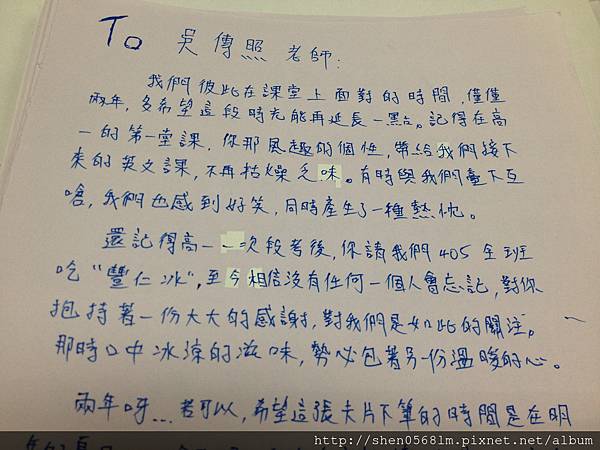 To 吳傳照 老師:
我們彼此在課堂上面對的時間,僅僅
兩年,多希望這段時光能再延長一點。記得在高
一的第一堂課,你那風趣的個性,帶給我們接下
來的英文課,不再枯燥乏味。有時與我們臺下互
嗆,我們也感到好笑,同時產生了一種熱忱。
還記得高一 一次段考後,你請我們405全班
吃"豐仁冰",至今相信沒有任何一個人會忘記,對你
抱持著一份大大的感謝,對我們是如此的關注。
那時口中冰涼的滋味,勢必包著另一份溫暖的心。
兩年呀...若可以,希望這張卡片下筆的時間是在明
http://shen0568lm.pixnet.net/album